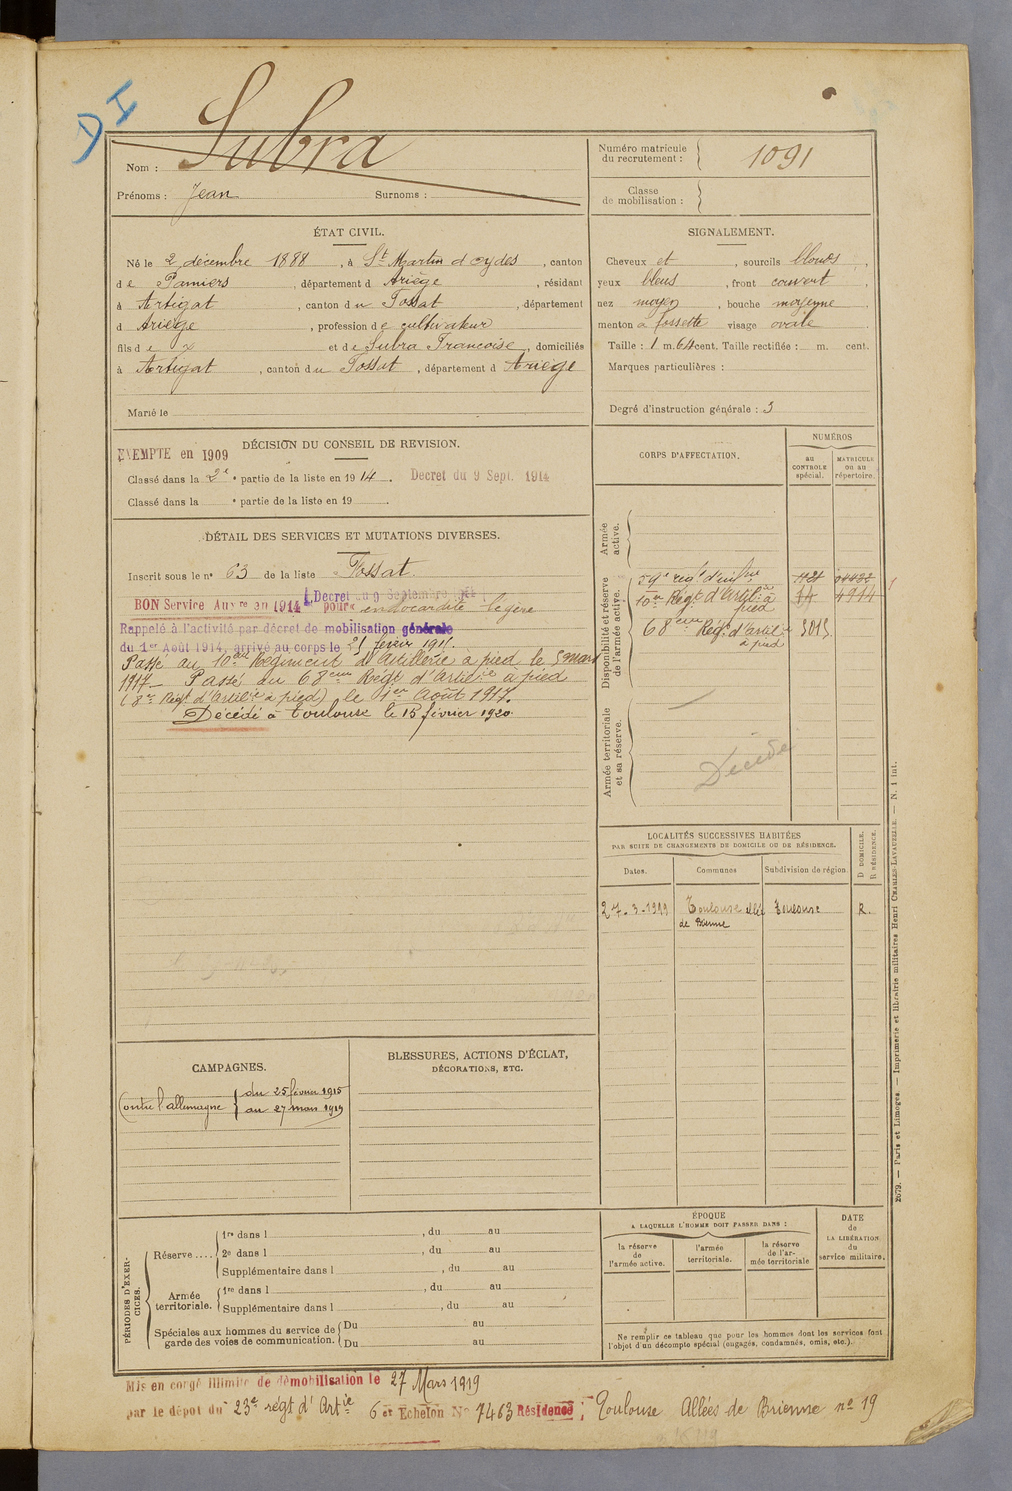 DI
Nom : Subra
Prénoms : Jean Surnoms :
Numéro matricule du recrutement : 1091
Classe de mobilisation :
ÉTAT CIVIL.
Né le 2 décembre 1888, à St Martin d'oydes, canton
de Pamiers, département d Ariège, résidant
à Artigat, canton du Fossat, département
d Ariège, profession de cultivateur
fils de x et de Subra Francoise, domiciliés
à Artigat, canton du Fossat, département d Ariège
Marié le
SIGNALEMENT.
Cheveux et, sourcils blonds,
yeux bleus, front couvert,
nez moyen, bouche moyenne
menton à fossette visage ovale
Taille : 1 m. 64 cent. Taille rectifiée : m. cent.
Marques particulières :
Degré d'instruction générale : 3
DÉCISION DU CONSEIL DE REVISION.
EXEMPTE en 1909
Classé dans la 2e partie de la liste en 1914. Decret du 9 Sept. 1914
Classé dans la e partie de la liste en 19
DÉTAIL DES SERVICES ET MUTATIONS DIVERSES.
Inscrit sous le n° 63 de la liste Fossat
(Decret du 9 Septembre 1914)
BON Service Auxre en 1914 pour endocardite légère
Rappelé à l'activité par décret de mobilisation générale
du 1er Août 1914, arrivé au corps le 25 février 1915.
Passé au 10eme Régiment d'Artillerie à pied le 5 mars
1917 – Passé au 68eme Régt d'Artilie à pied
(8e Régt d'Artilie à pied) le 1er Août 1917.
Décédé à Toulouse le 15 février 1920.
CORPS D'AFFECTATION.
NUMÉROS
au CONTROLE spécial.
MATRICULE ou au répertoire.
Armée active.
Disponibilité et réserve de l'armée active.
59e régt d'infrie 1121 04432
10me Régt d'Artilie à pied 14 4914
68eme Régt d'Artilie à pied 3015
Armée territoriale et sa réserve.
Décédé
LOCALITÉS SUCCESSIVES HABITÉES
PAR SUITE DE CHANGEMENTS DE DOMICILE OU DE RÉSIDENCE.
Dates. Communes Subdivision de région.
D DOMICILE. R RÉSIDENCE.
27-3-1919 Toulouse allée de Brienne Toulouse R.
CAMPAGNES.
Contre l'allemagne { du 25 février 1915
au 27 mars 1919
BLESSURES, ACTIONS D'ÉCLAT,
DÉCORATIONS, ETC.
PÉRIODES D'EXERCICES.
Réserve .... 1re dans l , du au
2e dans l , du au
Supplémentaire dans l , du au
Armée territoriale. 1re dans l , du au
Supplémentaire dans l , du au
Spéciales aux hommes du service de garde des voies de communication. Du au
Du au
ÉPOQUE
A LAQUELLE L'HOMME DOIT PASSER DANS :
la réserve de l'armée active.
l'armée territoriale.
la réserve de l'armée territoriale
DATE de LA LIBÉRATION du service militaire.
Ne remplir ce tableau que pour les hommes dont les services font
l'objet d'un décompte spécial (engagés, condamnés, omis, etc.).
2679. — Paris et Limoges. — Imprimerie et librairie militaires Henri CHARLES-LAVAUZELLE. — N. 1 int.
Mis en congé illimité de démobilisation le 27 Mars 1919
par le dépot du 23e régt d'Artie 6 et Echelon No 7463 Résidence ; Toulouse Allées de Brienne no 19